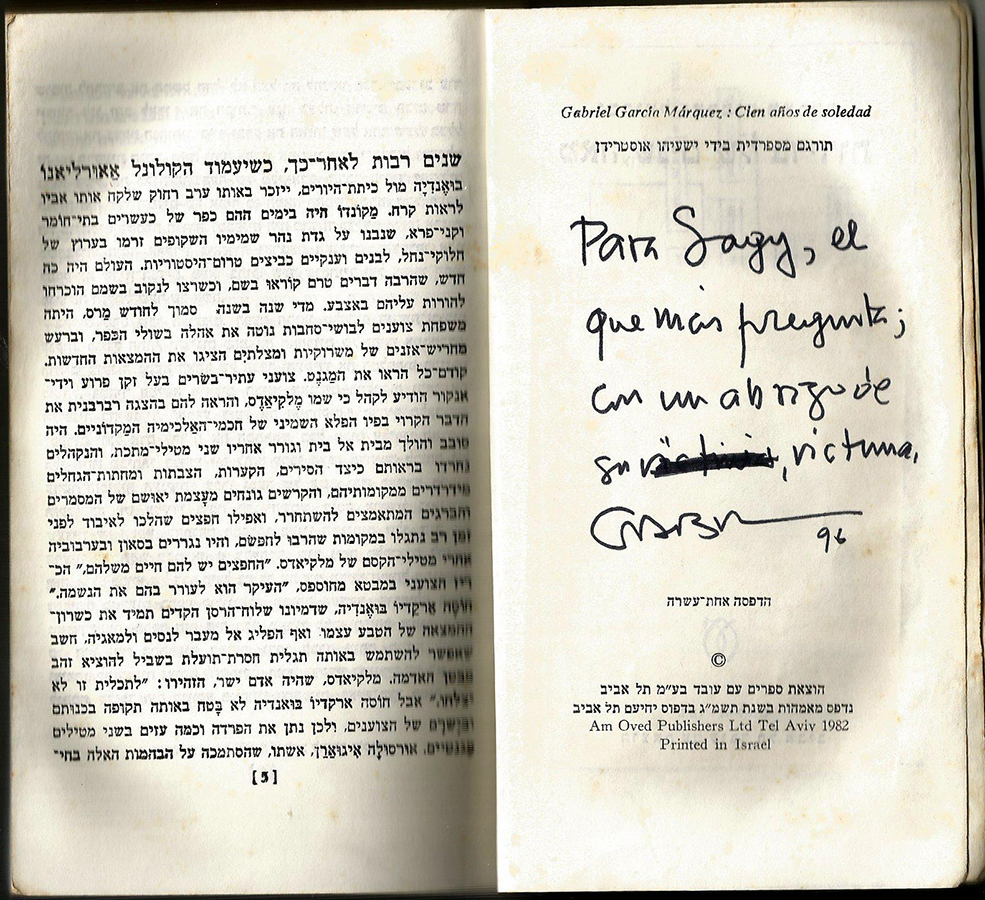 Gabriel García Márquez : Cien años de soledad
תורגם מספרדית בידי ישעיהו אוסטרידן
Para Sagy, el
que más pregunta;
con un abrazo de
su víctima,
GABO 96
הדפסה אחת־עשרה
©
הוצאת ספרים עם עובד בע״מ תל אביב
נדפס מאמהות בשנת תשמ״ג בדפוס יחיעם תל אביב
Am Oved Publishers Ltd Tel Aviv 1982
Printed in Israel
שנים רבות לאחר־כך, כשיעמוד הקולונל אַאוּרליאנוֹ
בּוּאֶנדִיָה מול כיתת־היורים, ייזכר באותו ערב רחוק שלקח אותו אביו
לראות קרח. מַקוֹנדוֹ היה בימים ההם כפר של כעשרים בתי־חומר
וקני־פרא, שנבנו על גדת נהר שמימיו השקופים זרמו בערוץ של
חלוקי־נחל, לבנים וענקיים כביצים טרום־היסטוריות. העולם היה כה
חדש, שהרבה דברים טרם קוֹראוּ בשם, וכשרצו לנקוב בשמם הוכרחו
להורות עליהם באצבע. מדי שנה בשנה, סמוך לחודש מַרס, היתה
משפחת צוענים לבושי־סחבות נוטה את אהלה בשולי הכפר, וברעש
מחריש־אזנים של משרוקיות ומצלתיִם הציגו את ההמצאות החדשות.
קודם־כל הראו את המַגנֶט. צועני עתיר־בשׂרים בעל זקן פרוע וידי־
אנקור הודיע לקהל כי שמו מֶלקִיאַדֶס, והראה להם בהצגה רברבנית את
הדבר הקרוי בפיו הפלא השמיני של חכמי־האַלכימיה המַקדוֹניים. היה
סובב והולך מבית אל בית וגורר אחריו שני מטילי־מתכת, והנקהלים
נחרדו בראותם כיצד הסירים, הקערות, הצבתות ומחתות־הגחלים
מידרדרים ממקומותיהם, והקרשים גונחים מעָצמת יאוּשם של המסמרים
והברגים המתאמצים להשתחרר, ואפילו חפצים שהלכו לאיבוד לפני
זמן רב נתגלו במקומות שהרבּוּ לחפשׂם, והיו נגררים בסאון ובערבוביה
אחרי מטילי־הקסם של מלקיאדס. ״החפצים יש להם חיים משלהם,״ הכ־
ריז הצועני במבטא מחוספס, ״העיקר הוא לעורר בהם את הנשמה.״
חוֹסֶה אַרקַדיוֹ בּוּאֶנדִיה, שדמיונו שלוח־הרסן הקדים תמיד את כשרון־
ההמצאה של הטבע עצמו, ואף הפליג אל מעבר לנסים ולמאגיה, חשב
שאפשר להשתמש באותה תגלית חסרת־תועלת בשביל להוציא זהב
מבטן האדמה. מלקיאדס, שהיה אדם ישר, הזהירו: ״לתכלית זו לא
יצלחו.״ אבל חוסה ארקדיו בואנדיה לא בָּטח באותה תקופה בכנותם
וביָשרם של הצוענים, ולכן נתן את הפרדה וכמה עזים בשני מטילים
מגנטיים. אורסולָה אִיגוּאַרָן, אשתו, שהסתמכה על הבהמות האלה בחי־
[5]